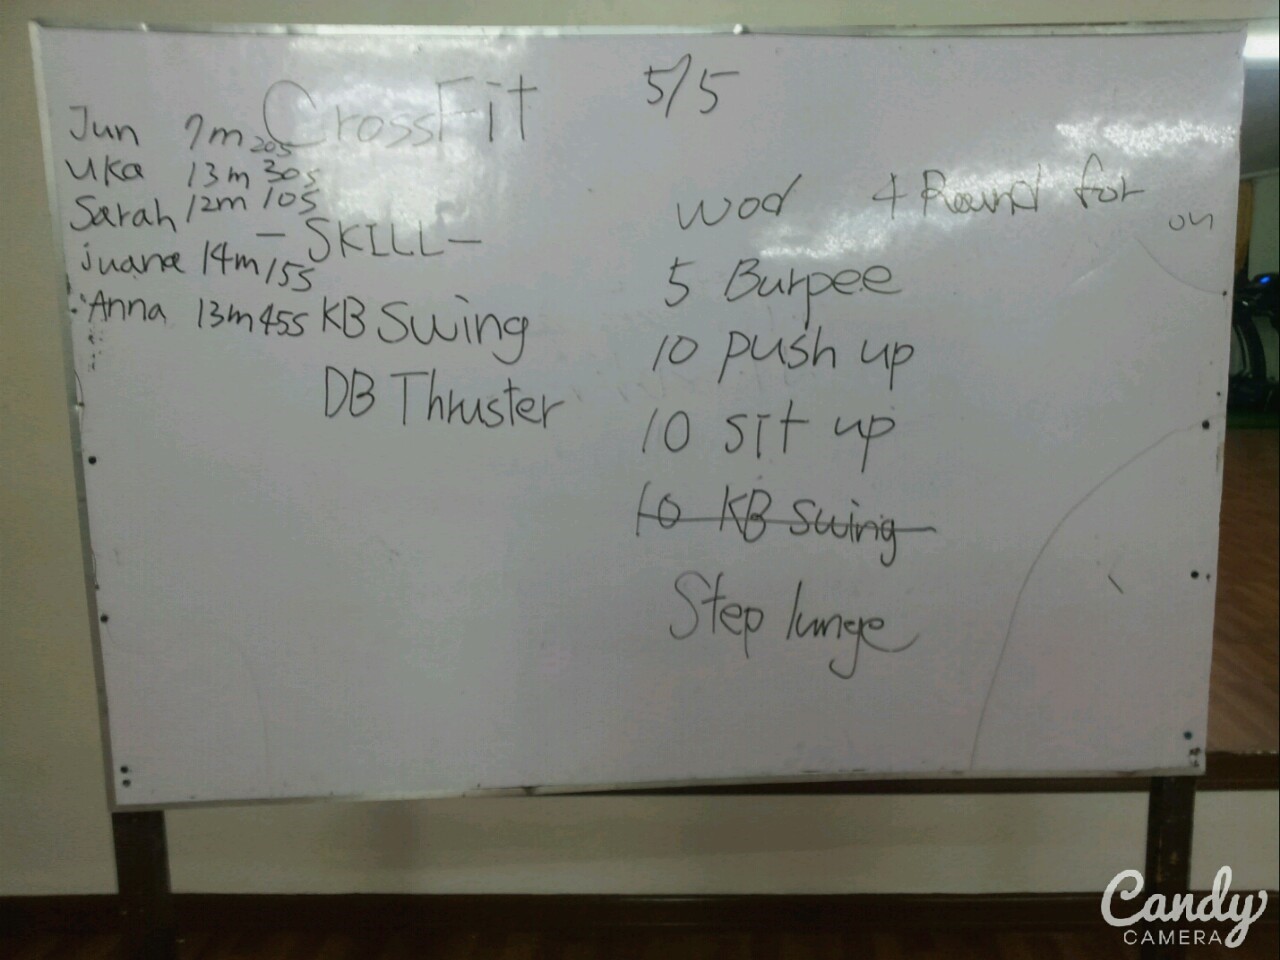 CrossFit
5/5
Jun 7m 20s
Uka 13m 30s
Sarah 12m 10s
juana 14m 15s
Anna 13m 45s
- SKILL -
KB Swing
DB Thruster
wod 4 Round for
5 Burpee
10 push up
10 sit up
10 KB swing
Step lunge
Candy
CAMERA